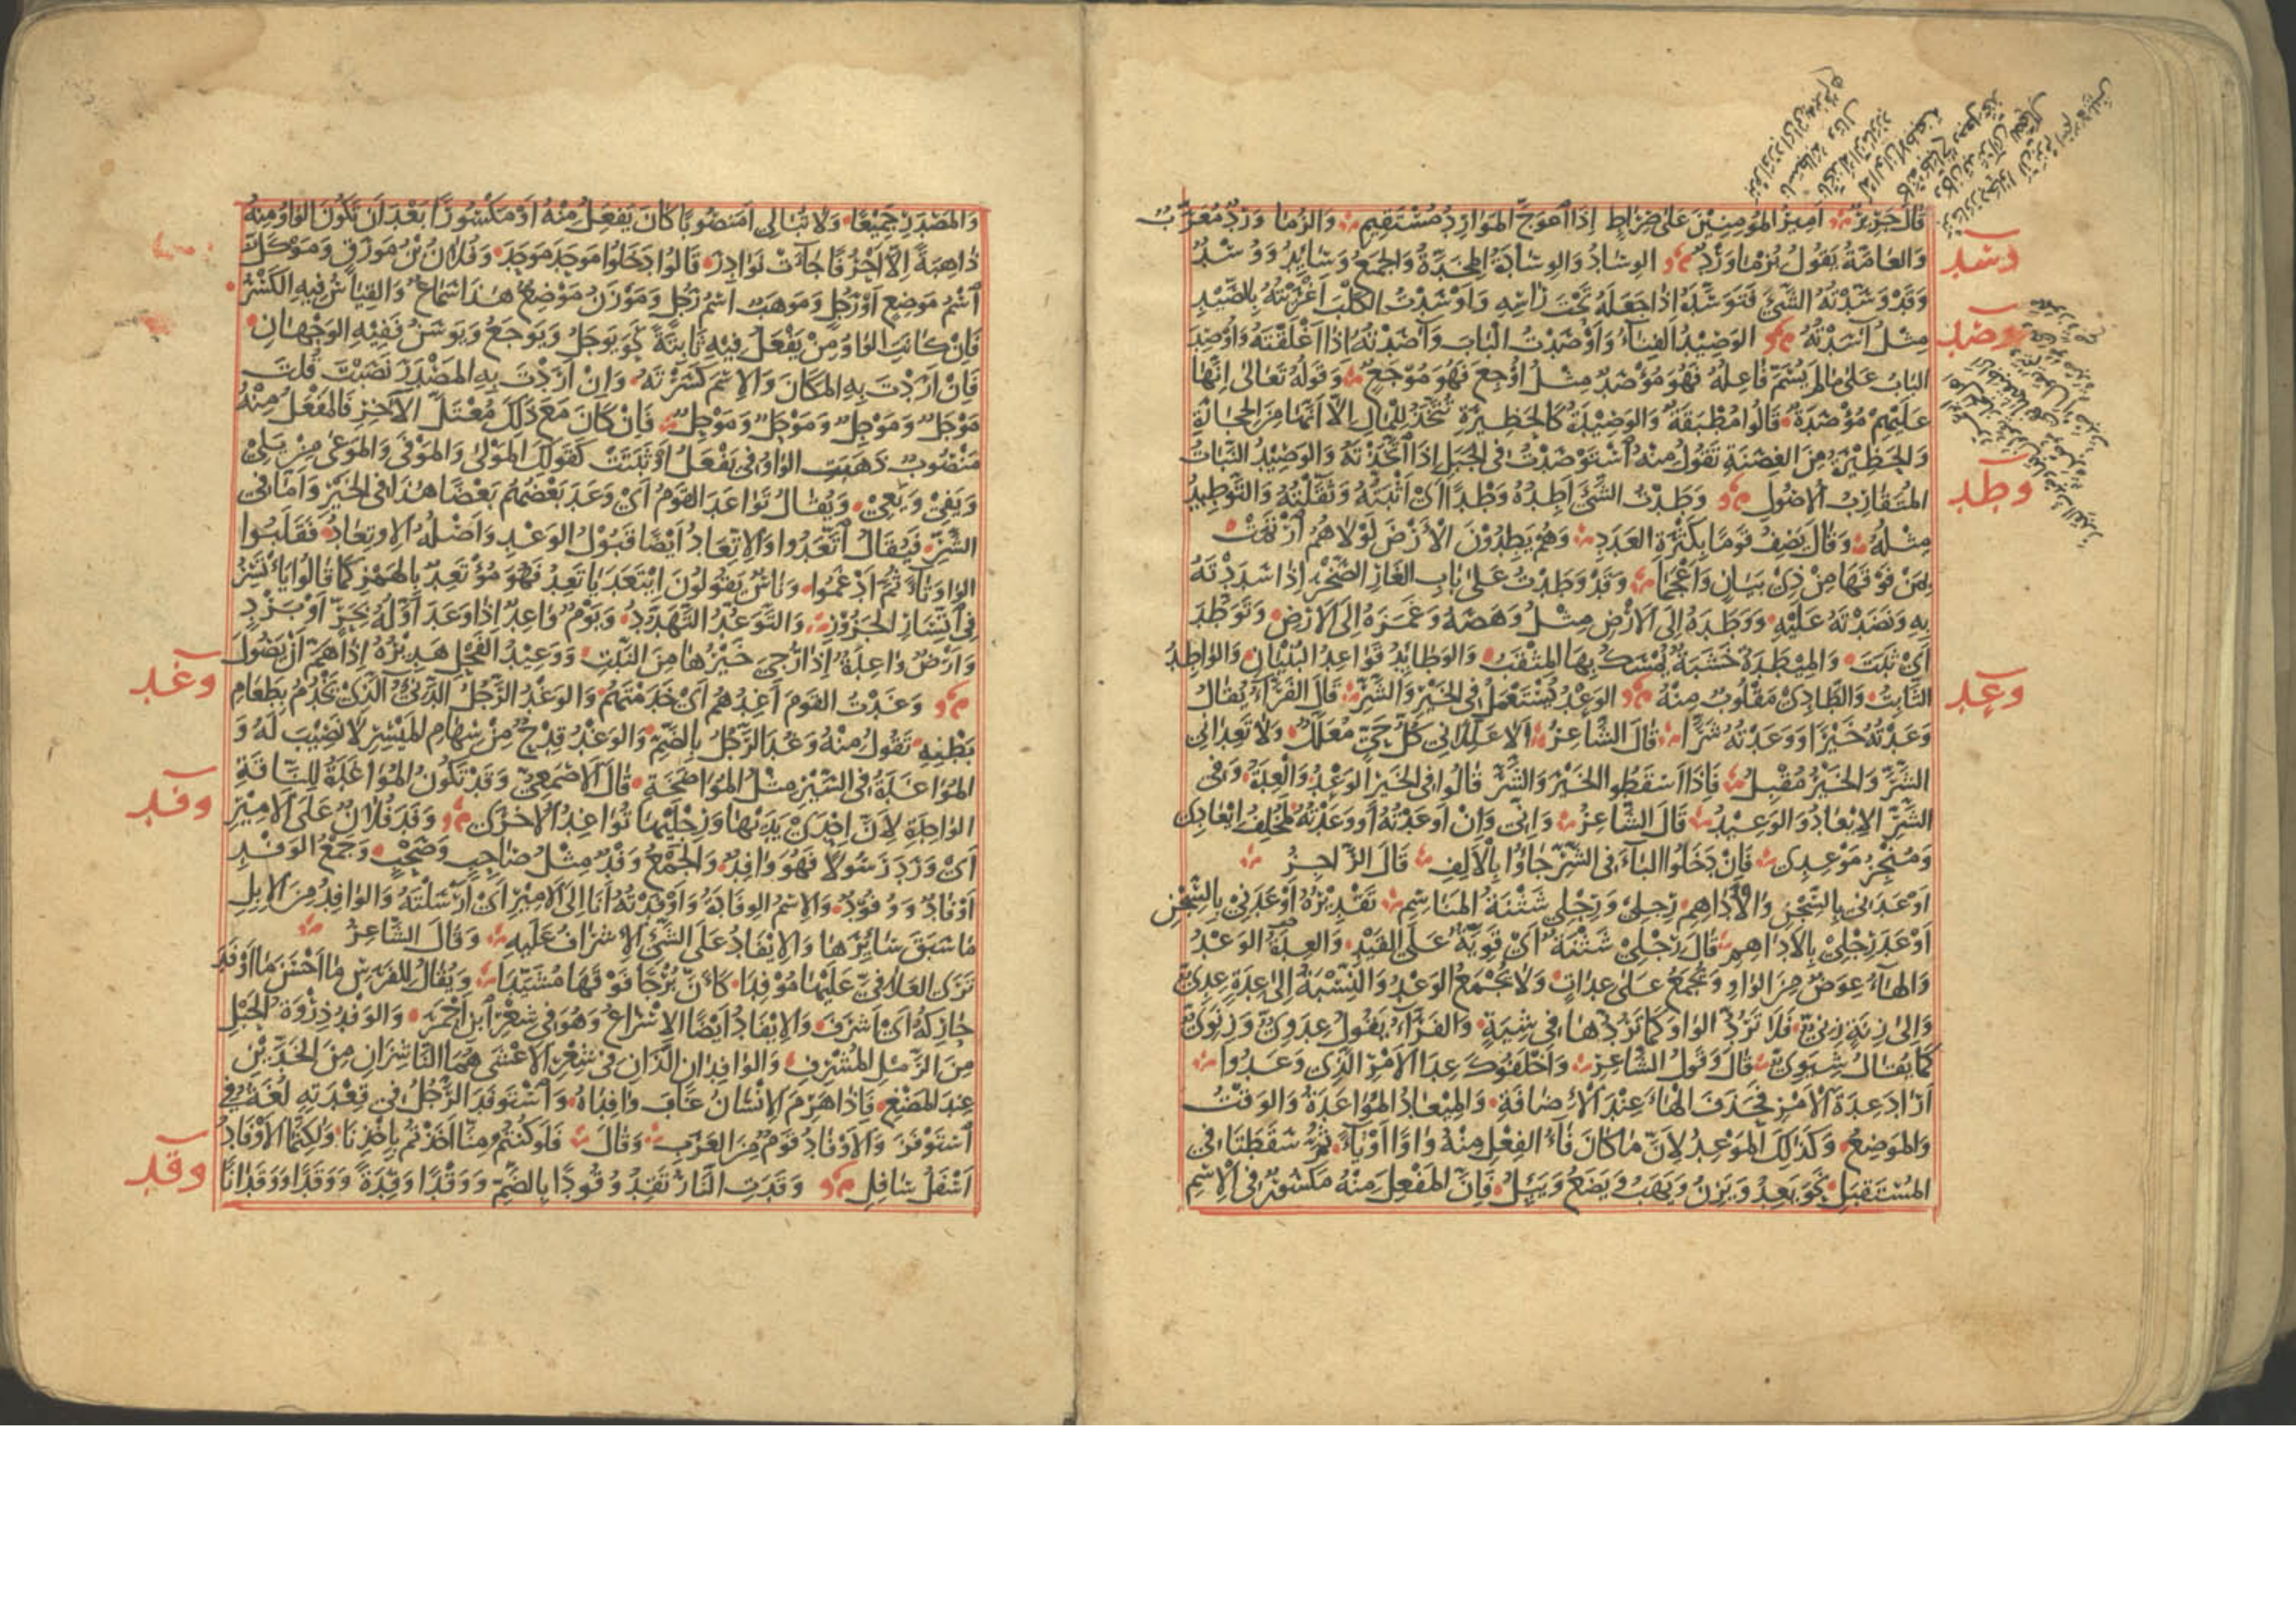 قَالَ جَرِيرٌ أَمِيرُ المُؤمِنِيْنَ عَلى صِرَاطٍ إِذَا اعوَجَّ المَوَارِدُ مُسْتَقِيمِ وَالزُّمَا وَرْدُ مُعَرَّبٌ
وَالعَامَّةُ يَقُولُ بُزْمَا وَرْدٌ الوِسَادُ وَالوِسَادَةُ المِخَدَّةُ وَالجَمْعُ وَسَايِدُ وَوُسُدٌ
وسد
وَقَدْ وَسَّدْتُهُ الشَّيْءَ فَتَوَسَّدَهُ إِذَا جَعَلَهُ تَحْتَ رَاسِهِ وَاَوْسَدْتُ الكَلْبَ اَغْرَيْتُهُ بِالصَّيْدِ
مِثْلُ آسَدْتُهُ الوَصِيْدُ الفِنَاءُ وَاَوْصَدْتُ البَابَ وَآصَدْتُهُ إِذَا اَغْلَقْتَهُ وَاُوصِدَ
وصد
البَابُ عَلى مَا لَمْ يُسَمَّ فَاعِلُهُ فَهُوَ مُوْصَدٌ مِثْلُ اُوْجِعَ فَهُوَ مُوْجَعٌ وَقَولُهُ تَعَالى اِنَّهَا
عَلَيْهِمْ مُؤْصَدَةٌ قَالُوا مُطْبَقَةٌ وَالوَصِيْدَةُ كَالحَظِيْرَةِ تُتَّخَذُ لِلْمَالِ اِلَّا اَنَّهَا مِنَ الحِجَارَةِ
وَالحَظِيْرَةُ مِنَ الغِصَنَةِ تَقُولُ مِنْهُ اسْتَوْصَدْتُ فِي الجَبَلِ إِذَا اتَّخَذْتَهُ وَالوَصِيْدُ النَّبَاتُ
المُتَقَارِبُ الاُصُولِ وَطَدْتُ الشَّيْءَ اَطِدُهُ وَطْدًا اَيْ اَثْبَتُّهُ وَثَقَّلْتُهُ وَالتَّوْطِيْدُ
وطد
مِثْلُهُ وَقَالَ يَصِفُ قَوْمًا بِكَثْرَةِ العَدَدِ وَهُمْ يَطِدُوْنَ الْاَرْضَ لَوْلَاهُمُ ارْتَمَتْ
بِمَنْ فَوْقَهَا مِنْ ذِيْ بَيَانٍ وَاَعْجَمَا وَقَدْ وَطَدْتُ عَلى بَابِ الغَارِ الصَّخْرَ إِذَا سَدَدْتَهُ
بِهِ وَنَضَدْتَهُ عَلَيْهِ وَوَطَدَهُ إِلَى الْاَرْضِ مِثْلُ وَهَصَهُ وَغَمَزَهُ إِلَى الاَرْضِ وَتَوَطَّدَ
اَيْ ثَبَتَ وَالمِيْطَدَةُ خَشَبَةٌ يُمْسَكُ بِهَا المِثْقَبُ وَالوَطَائِدُ قَوَاعِدُ البُنْيَانِ وَالوَاطِدُ
الثَّابِتُ وَالطَّادِيْ مَقْلُوبٌ مِنْهُ الوَعْدُ يُسْتَعْمَلُ فِي الخَيْرِ وَالشَّرِّ قَالَ الفَرَّاءُ يُقَالُ
وعد
وَعَدْتُهُ خَيْرًا وَوَعَدْتُهُ شَرًّا قَالَ الشَّاعِرُ اَلَا عَلِّلَانِي كُلُّ حَيٍّ مُعَلَّلُ وَلَا تَعِدَانِي
الشَّرَّ وَالخَيْرُ مُقْبِلُ فَاِذَا اَسْقَطُوا الخَيْرَ وَالشَّرَّ قَالُوا فِي الخَيْرِ الوَعْدُ وَالْعِدَةُ وَفِي
الشَّرِّ الاِيْعَادُ وَالوَعِيْدُ قَالَ الشَّاعِرُ وَاِنِّي وَاِنْ اَوعَدْتُهُ اَو وَعَدْتُهُ لَمُخْلِفُ اِيْعَادِي
وَمُنْجِزُ مَوْعِدِي فَاِنْ دَخَلُوا البَاءَ فِي الشَّرِّ جَاؤُا بِالْاَلِفِ قَالَ الرَّاجِزُ
اَوعَدَنِي بِالسِّجْنِ وَالْاَدَاهِمِ رِجْلِي وَرِجْلِي شَثْنَةُ المَنَاسِمِ تَقْدِيْرُهُ اَوْعَدَنِي بِالسِّجْنِ
اَوْعَدَ رِجْلِيْ بِالاَدَاهِمِ قَالَ رِجْلِيْ شَثْنَةٌ اَيْ قَوِيَّةٌ عَلَى القَيْدِ وَالعِدَةُ الوَعْدُ
وَالهَاءُ عِوَضٌ مِنَ الوَاوِ وَتُجْمَعُ عَلى عِدَاتٍ وَلَا يُجْمَعُ الوَعْدُ وَالنِّسْبَةُ اِلَى عِدَةٍ عِدِيٌّ
وَاِلَى زِنَةٍ زِنِيٌّ فَلَا تَرُدَّ الوَاوَ كَمَا تَرُدُّهَا فِي شِيَةٍ وَالفَرَّاءُ يَقُولُ عِدَوِيٌّ وَزِنَوِيٌّ
كَمَا يُقَالُ شِيَوِيٌّ قَالَ وَقَولُ الشَّاعِرِ وَاَخْلَفُوكَ عِدَا الاَمْرِ الَّذِي وَعَدُوا
اَرَادَ عِدَةَ الاَمْرِ فَحَذَفَ الهَاءَ عِنْدَ الْاِضَافَةِ وَالمِيْعَادُ المُوَاعَدَةُ وَالوَقْتُ
وَالمَوضِعُ وَكَذَلِكَ المَوْعِدُ لِاَنَّ مَا كَانَ فَاءُ الفِعْلِ مِنْهُ وَاوًا اَوْ يَاءً ثُمَّ سَقَطَتَا فِي
المُسْتَقبَلِ نَحْوُ يَعِدُ وَيَزِنُ وَيَهَبُ وَيَضَعُ وَيَئِلُ فَاِنَّ المَفْعِلَ مِنْهُ مَكْسُورٌ فِي الْاِسْمِ
وَالمَصْدَرِ جَمِيْعًا وَلَا تُبَالِي اَمَنصُوبًا كَانَ يَفعَلُ مِنْهُ اَوْ مَكْسُورًا بَعْدَ اَنْ تَكُونَ الوَاوُ مِنْهُ
ذَاهِبَةً اِلَّا اَحْرُفًا جَاءَتْ نَوَادِرَ قَالُوا دَخَلُوا مَوحَدَ مَوحَدَ وَفُلَانُ بْنُ مَورَقٍ وَمَوْكَلٌ
اسْمُ مَوضِعٍ اَوْ رَجُلٍ وَمَوهَبٌ اسْمُ رَجُلٍ وَمَوْزَنٌ مَوْضِعٌ هَذَا سَمَاعٌ وَالقِيَاسُ فِيهِ الكَسْرُ
فَاِنْ كَانَتِ الوَاوُ مِنْ يَفْعَلُ فِيهِ ثَابِتَةً نَحْوُ يَوجَلُ وَيَوجَعُ وَيَوسَنُ فَفِيْهِ الوَجْهَانِ
فَاِنْ اَرَدْتَ بِهِ المَكَانَ وَالاِسْمَ كَسَرْتَهُ وَاِنْ اَرَدْتَ بِهِ المَصْدَرَ نَصَبْتَ قُلتَ
مَوْجَلٌ وَمَوْجِلٌ وَمَوْجَلٌ وَمَوْجِلٌ فَاِنْ كَانَ مَعَ ذَلِكَ مُعْتَلَّ الآخِرِ فَالمَفْعَلُ مِنْهُ
مَنْصُوبٌ ذَهَبَتِ الوَاوُ فِي يَفْعَلُ اَوْ ثَبَتَتْ كَقَولِكَ المَوْلى وَالمَوْفى وَالمَوعى مِنْ يَلِيْ
وَيَفِيْ وَيَعِيْ وَيُقَالُ تَوَاعَدَ القَوْمُ اَيْ وَعَدَ بَعْضُهُمْ بَعْضًا هَذَا فِي الخَيْرِ وَاَمَّا فِي
الشَّرِّ فَيُقَالُ اتَّعَدُوا وَالاِتِّعَادُ اَيْضًا قَبُوْلُ الوَعْدِ وَاَصْلُهُ الاِوتِعَادُ فَقَلَبُوا
الوَاوَ تَاءً ثُمَّ اَدْغَمُوا وَنَاسٌ يَقُولُونَ ايْتَعَدَ يَاتَعِدُ فَهُوَ مُؤْتَعِدٌ بِالهَمْزِ كَمَا قَالُوا يَأْتَسِرُ
فِي اتِّسَارِ الجَزُوْرِ وَالتَّوَعُّدُ التَّهَدُّدُ وَيَوْمٌ وَاعِدٌ إِذَا وَعَدَ اَوَّلُهُ بِحَرٍّ اَوْ بَرْدٍ
وَاَرْضٌ وَاعِدَةٌ إِذَا رُجِيَ خَيْرُهَا مِنَ النَّبْتِ وَوَعِيْدُ الفَحْلِ هَدِيْرُهُ إِذَا هَمَّ اَنْ يَصُولَ
وَغَدْتُ القَوْمَ اَغِدُهُمْ اَيْ خَدَمْتُهُمْ وَالوَغْدُ الرَّجُلُ الدَّنِيُّ الَّذِيْ يَخْدُمُ بِطَعَامِ
وغد
بَطْنِهِ تَقُولُ مِنْهُ وَغُدَ الرَّجُلُ بِالضَّمِّ وَالوَغْدُ قِدْحٌ مِنْ سِهَامِ المَيْسِرِ لَا نَصِيْبَ لَهُ وَ
المُوَاغَدَةُ فِي السَّيْرِ مِثْلُ المُوَاضَخَةِ قَالَ الاَصْمَعِيُّ وَقَدْ تَكُونُ المُوَاغَدَةُ لِلنَّاقَةِ
الوَاحِدَةِ لِاَنَّ اِحْدَى يَدَيْهَا وَرِجْلَيْهَا تُوَاغِدُ الاُخْرَى وَفَدَ فُلَانٌ عَلَى الاَمِيْرِ
وفد
اَيْ وَرَدَ رَسُولًا فَهُوَ وَافِدٌ وَالجَمْعُ وَفْدٌ مِثْلُ صَاحِبٍ وَصَحْبٍ وَجَمْعُ الوَفْدِ
اَوْفَادٌ وَوُفُوْدٌ وَالاِسْمُ الوِفَادَةُ وَاَوْفَدْتُهُ اَنَا اِلَى الاَمِيْرِ اَيْ اَرْسَلْتُهُ وَالوَافِدُ مِنَ الاِبِلِ
مَا سَبَقَ سَايِرَهَا وَالاِيْفَادُ عَلَى الشَّيْءِ الاِشْرَافُ عَلَيهِ وَقَالَ الشَّاعِرُ
تَرَى العِلَافِيَّ عَلَيْهَا مُوْفِدَا كَاَنَّ بُرْجًا فَوْقَهَا مُشَيَّدَا وَيُقَالُ لِلفَرَسِ مَا اَحْسَنَ مَا اَوْفَدَ
حَارِكُهُ اَيْ اَشْرَفَ وَالاِيْفَادُ اَيْضًا الاِسْرَاعُ وَهُوَ فِي شِعْرِ ابنِ اَحْمَرَ وَالوَفْدُ ذِرْوَةُ الحَبْلِ
مِنَ الرَّمْلِ المُشْرِفِ وَالوَافِدَانِ الَّذَانِ فِي شِعْرِ الاَعْشَى هُمَا النَّاشِزَانِ مِنَ الخَدَّيْنِ
عِنْدَ المَضْغِ فَاِذَا هَرِمَ الاِنْسَانُ غَابَ وَافِدَاهُ وَاسْتَوفَدَ الرَّجُلُ فِي قِعْدَتِهِ لُغَةٌ فِي
اسْتَوْفَزَ وَالاَوْفَادُ قَوْمٌ مِنَ العَرَبِ وَقَالَ فَلَو كُنْتُمْ مِنَّا اَخَذْتُمْ بِاَخْذِنَا وَلَكِنَّمَا الاَوْفَادُ
اَسْفَلَ سَافِلِ وَقَدَتِ النَّارُ تَقِدُ وُقُودًا بِالضَّمِّ وَوَقْدًا وَقِدَةً وَوَقَدًا وَوَقَدَانًا
وقد